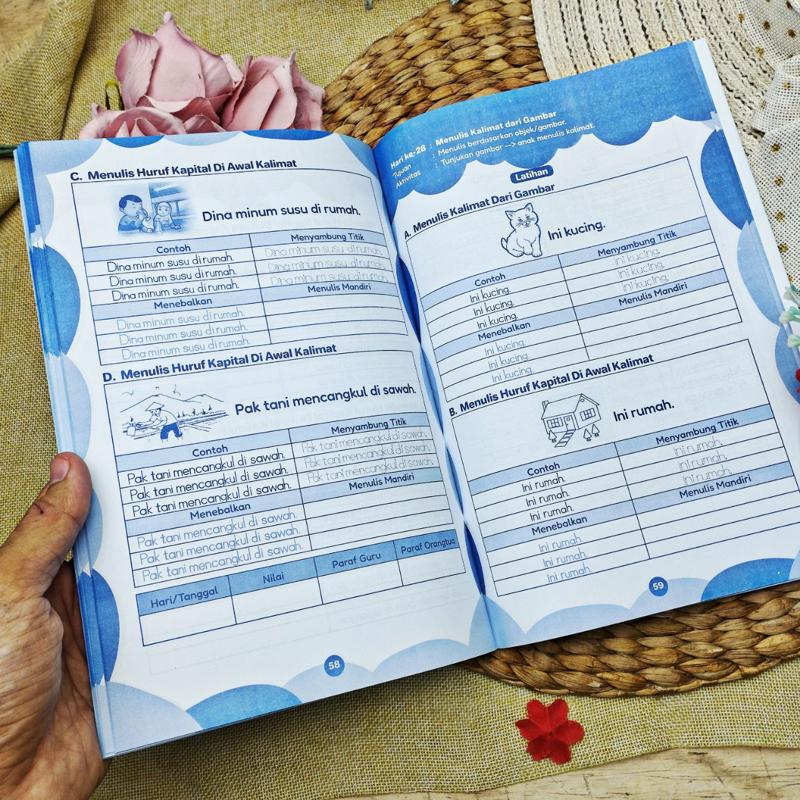 C. Menulis Huruf Kapital Di Awal Kalimat
Dina minum susu di rumah.
Contoh
Menyambung Titik
Dina minum susu di rumah.
Dina minum susu di rumah.
Dina minum susu di rumah.
Dina minum susu di rumah.
Dina minum susu di rumah.
Dina minum susu di rumah.
Menebalkan
Menulis Mandiri
Dina minum susu di rumah.
Dina minum susu di rumah.
Dina minum susu di rumah.
D. Menulis Huruf Kapital Di Awal Kalimat
Pak tani mencangkul di sawah.
Contoh
Menyambung Titik
Pak tani mencangkul di sawah.
Pak tani mencangkul di sawah.
Pak tani mencangkul di sawah.
Pak tani mencangkul di sawah.
Pak tani mencangkul di sawah.
Pak tani mencangkul di sawah.
Menebalkan
Menulis Mandiri
Pak tani mencangkul di sawah.
Pak tani mencangkul di sawah.
Pak tani mencangkul di sawah.
Hari/Tanggal
Nilai
Paraf Guru
Paraf Orangtua
58
Hari ke-28 : Menulis Kalimat dari Gambar
Tujuan : Menulis berdasarkan objek/gambar.
Aktivitas : Tunjukan gambar --> anak menulis kalimat.
Latihan
A. Menulis Kalimat Dari Gambar
Ini kucing.
Contoh
Menyambung Titik
Ini kucing.
Ini kucing.
Ini kucing.
Ini kucing.
Ini kucing.
Ini kucing.
Menebalkan
Menulis Mandiri
Ini kucing.
Ini kucing.
Ini kucing.
B. Menulis Huruf Kapital Di Awal Kalimat
Ini rumah.
Contoh
Menyambung Titik
Ini rumah.
Ini rumah.
Ini rumah.
Ini rumah.
Ini rumah.
Ini rumah.
Menebalkan
Menulis Mandiri
Ini rumah.
Ini rumah.
Ini rumah.
59